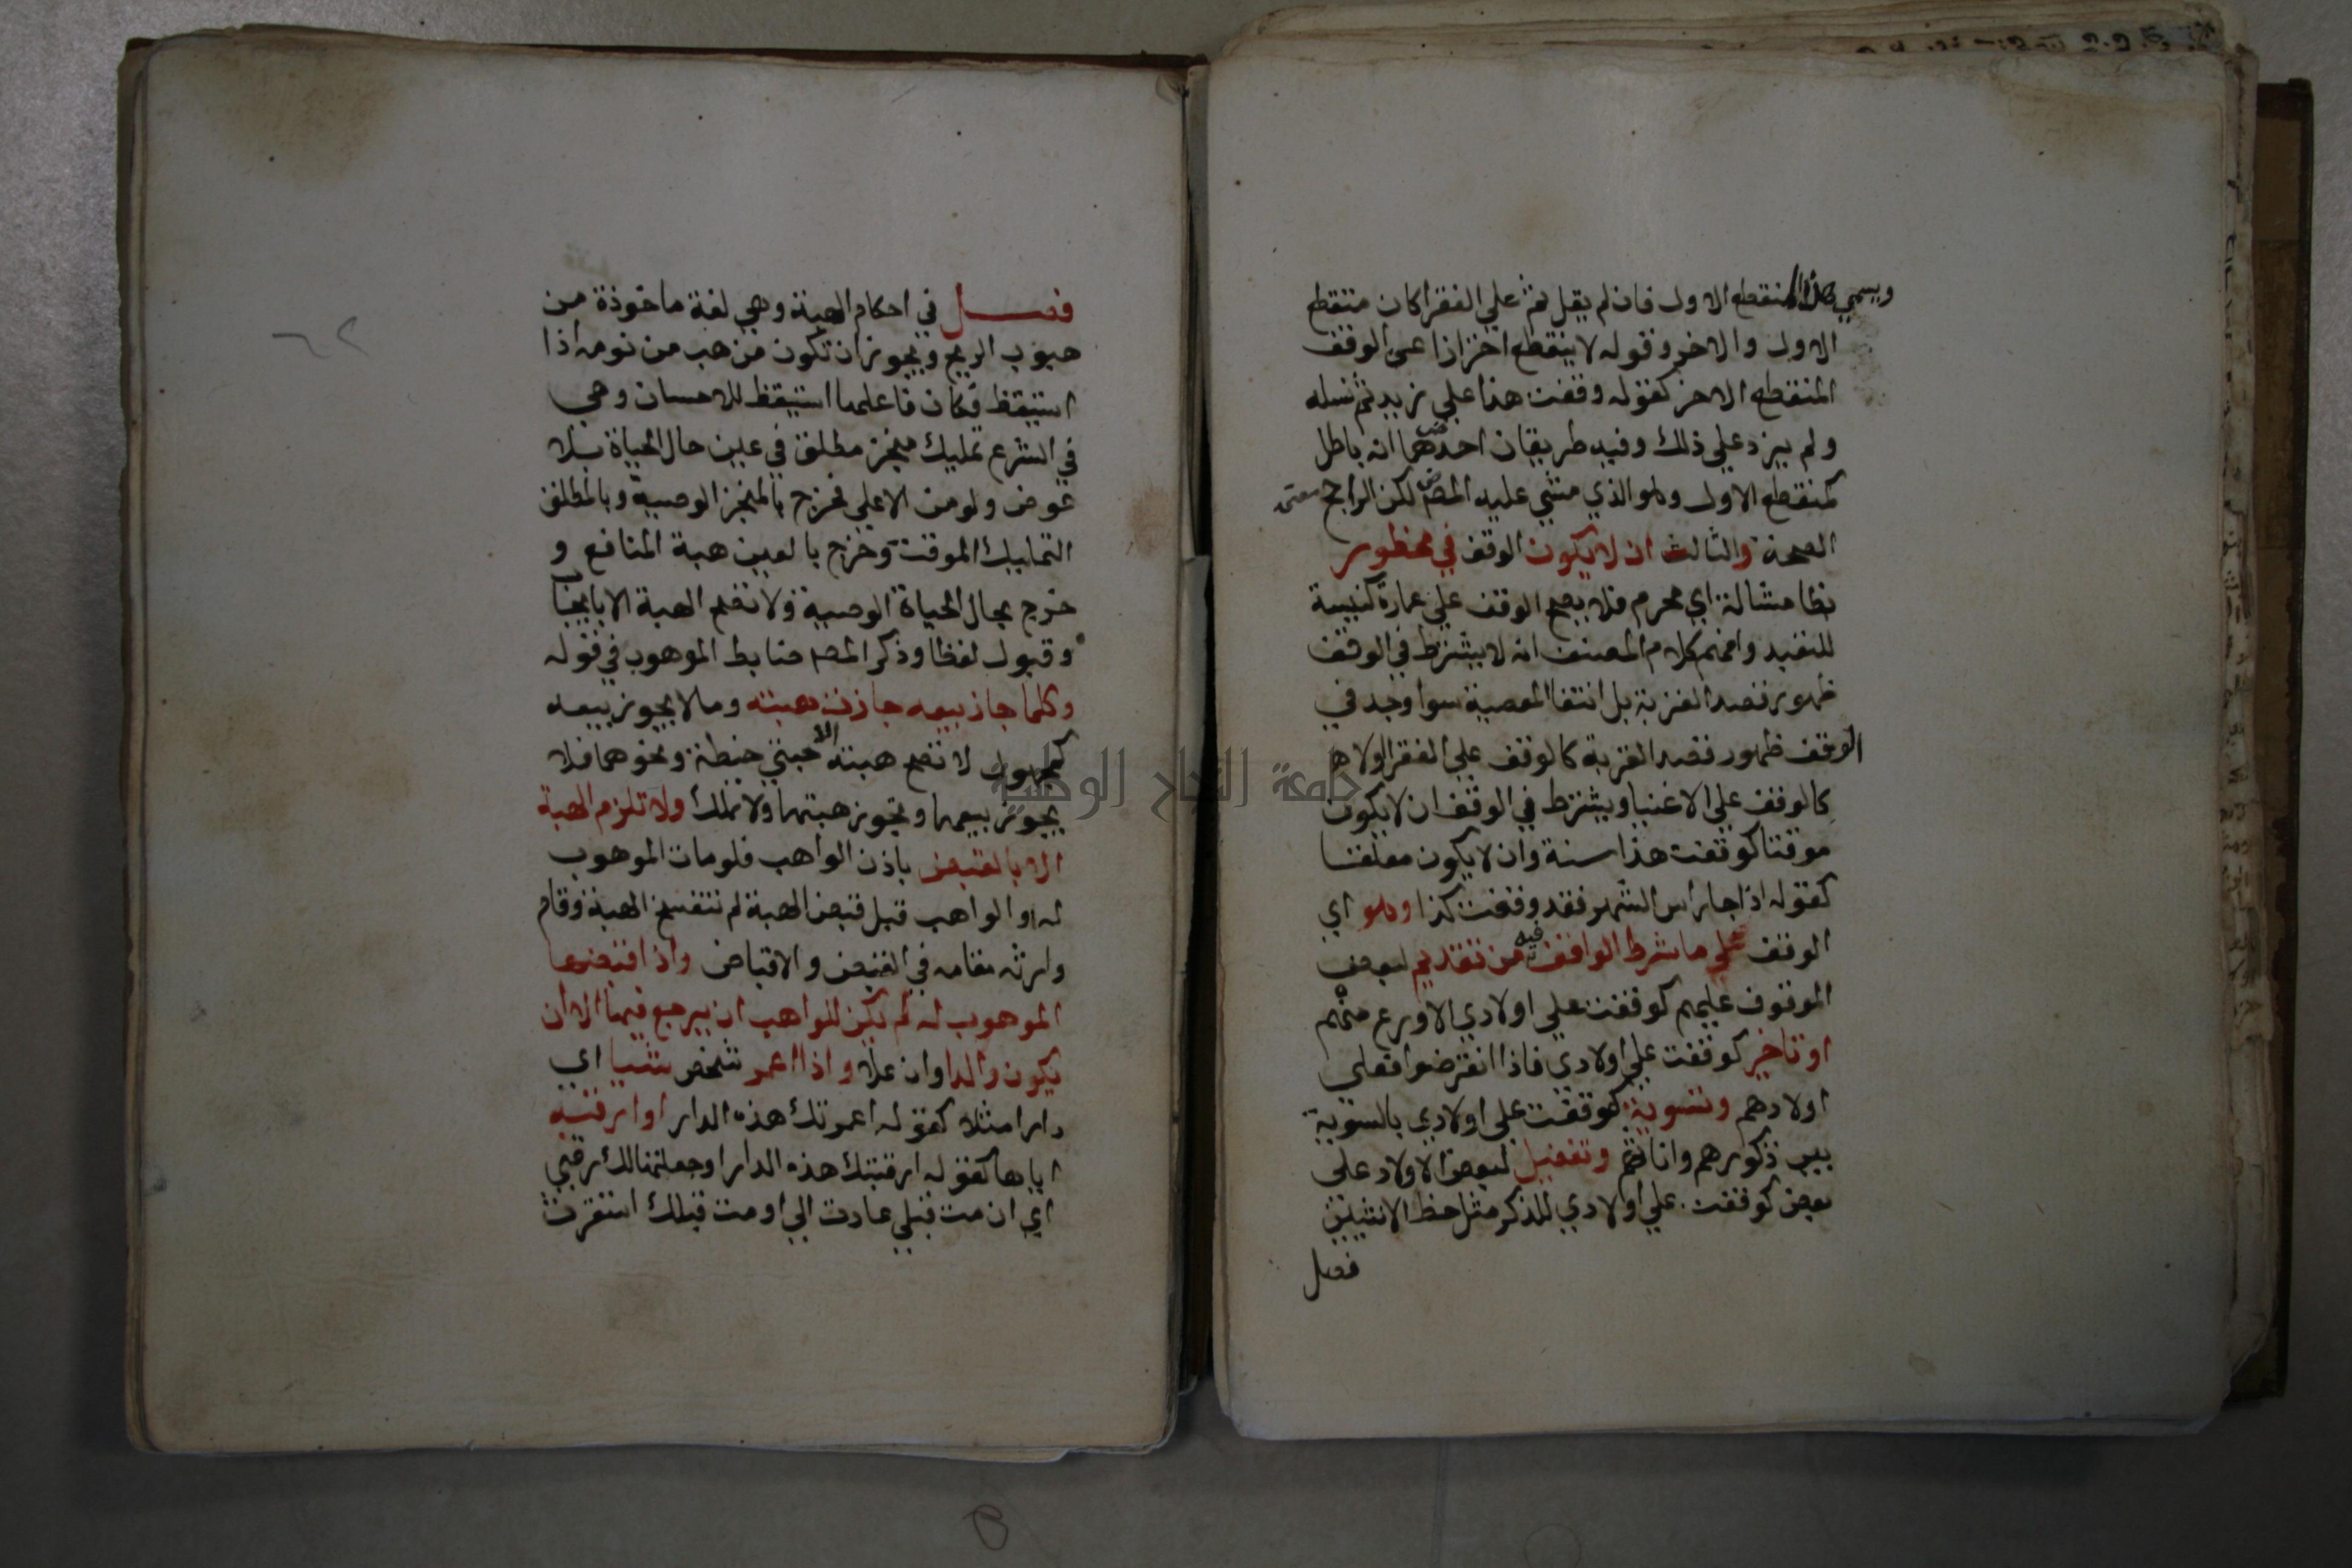 ويسمي هذا المنقطع الاول فان لم يقل ثم علي الفقرا كان منقطع
الاول والاخر وقوله لا ينقطع احترازا عن الوقف
المنقطع الاخر كقوله وقفت هذا علي زيد ثم نسله
ولم يزد علي ذلك وفيه طريقان احدهما انه باطل
كمنقطع الاول وهو الذي مشي عليه المصن لكن الراجح
الصحة والثالث ان لا يكون الوقف في محظور
بظا مشالة اي محرم فلا يصح الوقف علي عمارة كنيسة
للتعبد وافهم كلام المصنف انه لا يشترط في الوقف
ظهور قصد القربة بل انتفا المعصية سوا وجد في
الوقف ظهور قصد القربة كالوقف علي الفقرا ولا
كالوقف علي الاغنيا ويشترط في الوقف ان لا يكون
موقتا كوقفت هذا سنة وان لا يكون معلقا
كقوله اذا جا راس الشهر فقد وقفت كذا وهو اي
الوقف علي ما شرط الواقف فيه من تقديم لبعض
الموقوف عليهم كوقفت علي اولادي الاورع منهم
او تاخير كوقفت علي اولادي فاذا انقرضوا فعلي
اولادهم وتسوية كوقفت علي اولادي بالسوية
بين ذكورهم واناثهم وتفضيل لبعض الاولاد علي
بعض كوقفت علي اولادي للذكر مثل حظ الانثيين
فصل
فصل في احكام الهبة وهي لغة ماخوذة من
هبوب الريح ويجوز ان تكون من هب من نومه اذا
استيقظ فكان فاعلها استيقظ للاحسان وهي
في الشرع تمليك منجز مطلق في عين حال الحياة بلا
عوض ولو من الاعلي فخرج بالمنجز الوصية وبالمطلق
التمليك الموقت وخرج بالعين هبة المنافع و
خرج بحال الحياة الوصية ولا تصح الهبة الا بايجاب
وقبول لفظا وذكر المصن ضابط الموهوب في قوله
وكلما جاز بيعه جازت هبته وما لا يجوز بيعه
كمجهول لا تصح هبته الا حبتي حنطة ونحوهما فلا
يجوز بيعهما وتجوز هبتهما ولا تملك ولا تلزم الهبة
الا بالقبض باذن الواهب فلو مات الموهوب
له او الواهب قبل قبض الهبة لم تنفسخ الهبة وقام
وارثه مقامه في القبض والاقباض واذا قبضها
الموهوب له لم يكن للواهب ان يرجع فيها الا ان
يكون والدا وان علا واذا اعمر شخص شيا اي
دارا مثلا كقوله اعمرتك هذه الدار او ارقبه
اياها كقوله ارقبتك هذه الدار او جعلتها لك رقبي
اي ان مت قبلي عادت الي او مت قبلك استقرت
٦٢
جامعة النجاح الوطنية